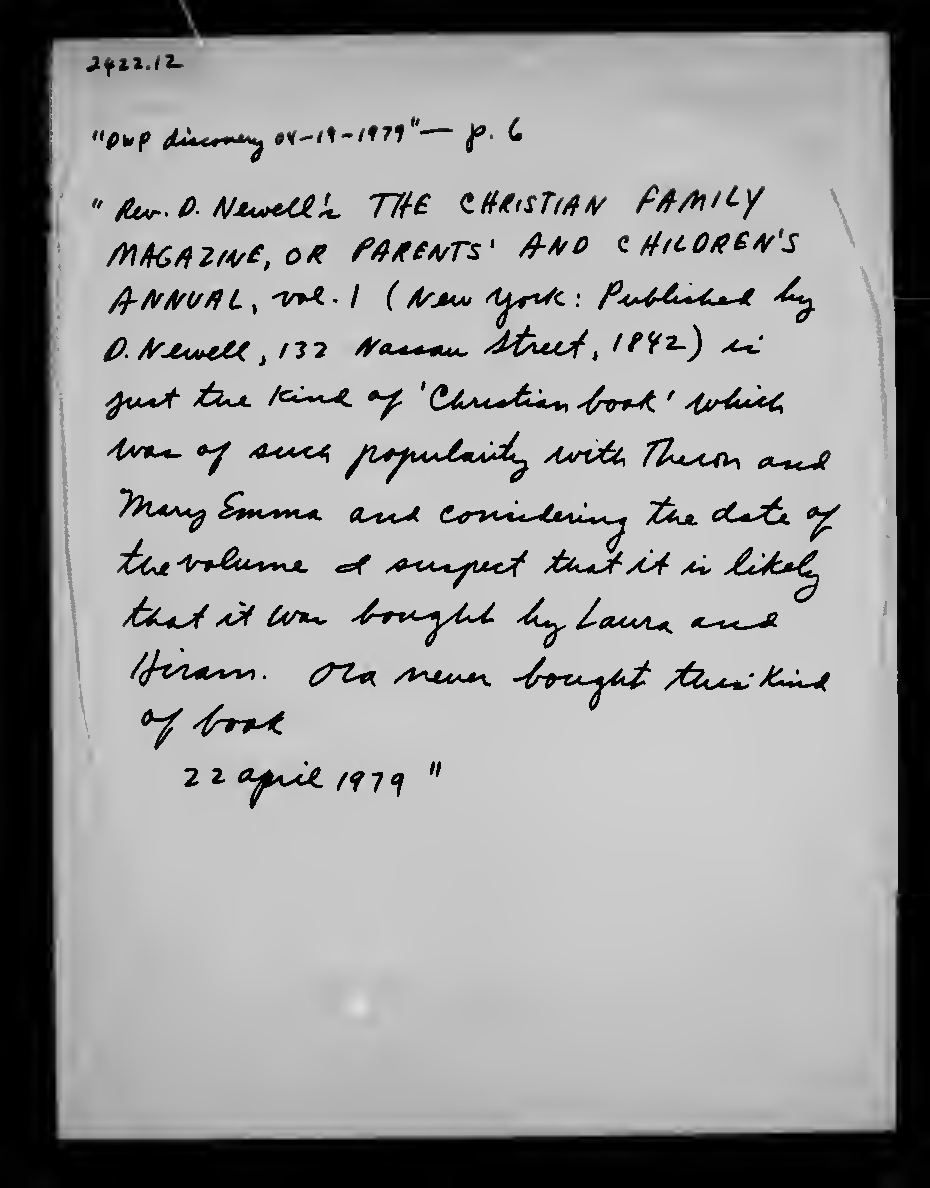 2422.12
"DWP discovery 04-19-1979" — p. 6
" Rev. D. Newell's THE CHRISTIAN FAMILY
MAGAZINE, OR PARENTS' AND CHILDREN'S
ANNUAL, vol. 1 (New York: Published by
D. Newell, 132 Nassau Street, 1842) is
just the kind of 'Christian book' which
was of such popularity with Theron and
Mary Emma and considering the date of
the volume I suspect that it is likely
that it was bought by Laura and
Hiram. Ola never bought this kind
of book
22 april 1979 "